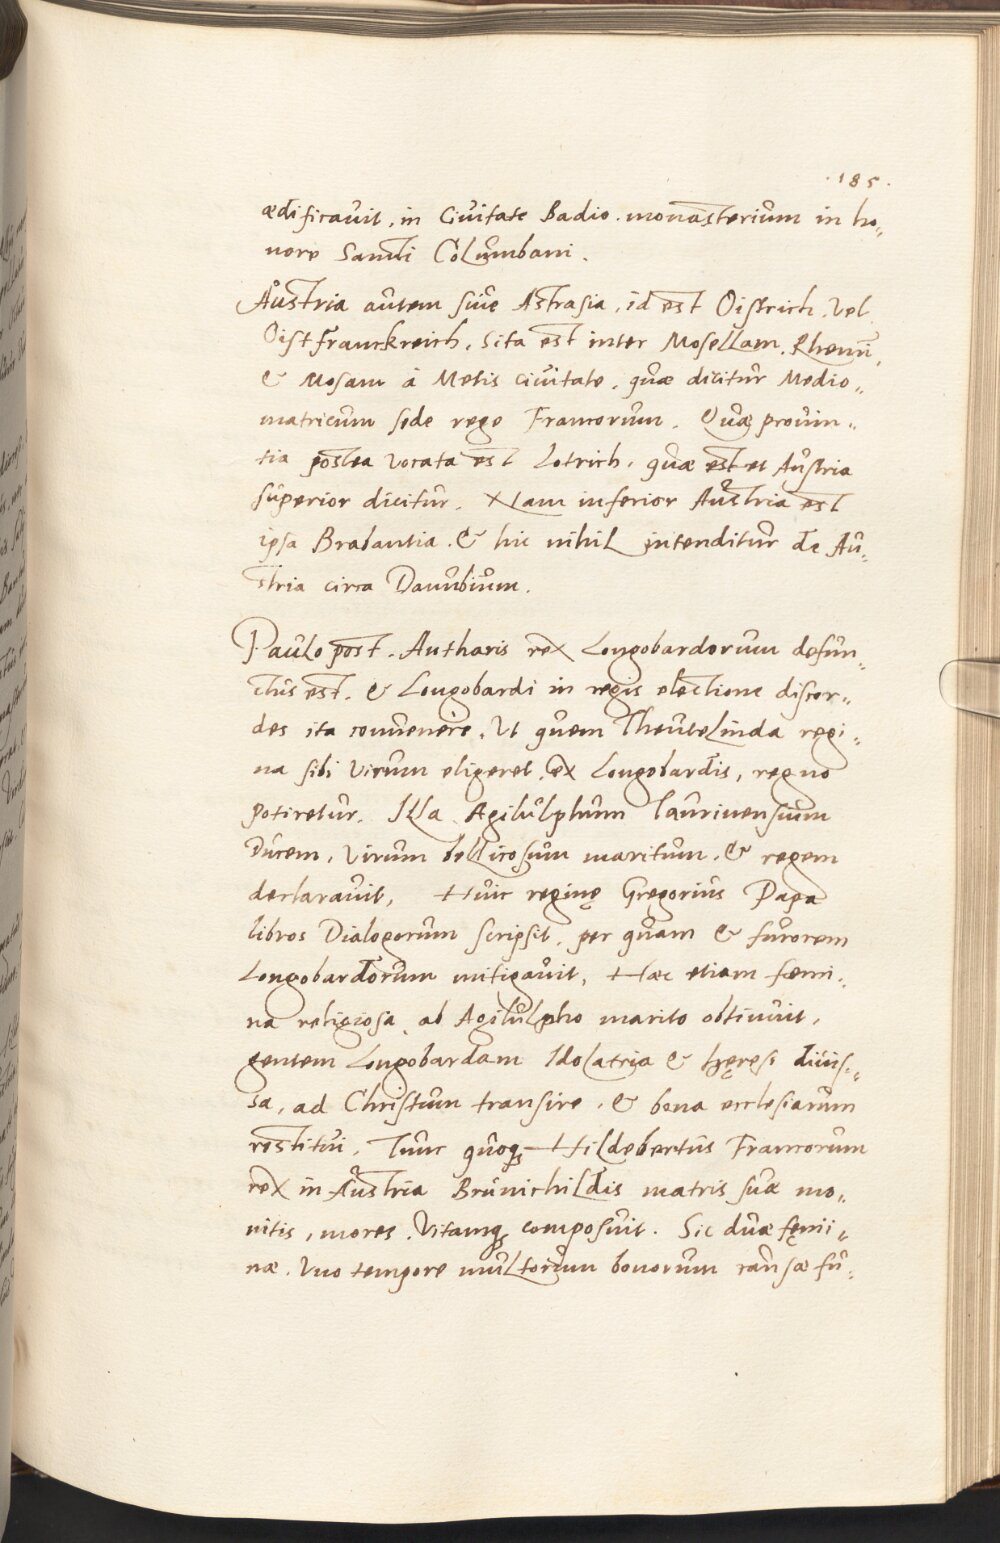 .185.
ædificavit, in Civitate Badio. monasterium in ho„
nore Sancti Columbani.
Austria autem sive Astrasia, id est Oistrich, vel
Oistfranckreich, sita est inter Mosellam, Rhenū,
& Mosam à Metis civitate, quæ dicitur Medio„
matricum sede rege Francorum. Quæ provin„
tia postea vocata est Lotrich, quæ est et Austria
superior dicitur. Nam inferior Austria est
ipsa Brabantia. & hic nihil intenditur de Au„
stria circa Danubium.
Paulo post. Autharis rex Longobardorum defun„
ctus est. & Longobardi in regis electione discor„
des ita convenere, Ut quem Theutelinda regi„
na sibi virum eligeret, ex Longobardis, regno
potiretur. Illa Agilulphum Taurinensium
Ducem, virum bellicosum maritum, & regem
declaravit, Huic reginę Gregorius Papa
libros Dialogorum scripsit, per quam & furorem
Longobardorum mitigavit, Hæc etiam fœmi„
na religiosa ab Agilulpho marito obtinuit,
gentem Longobardam Idolatria & hęresi divis„
sa, ad Christum transire, & bona ecclesiarum
restitui. Tunc quoqꝫ Hildebertus Francorum
rex in Austria Brunichildis matris suæ mo„
nitis, mores, vitamqꝫ composuit. Sic duæ fęmi„
næ. Uno tempore multorum bonorum causæ fu„